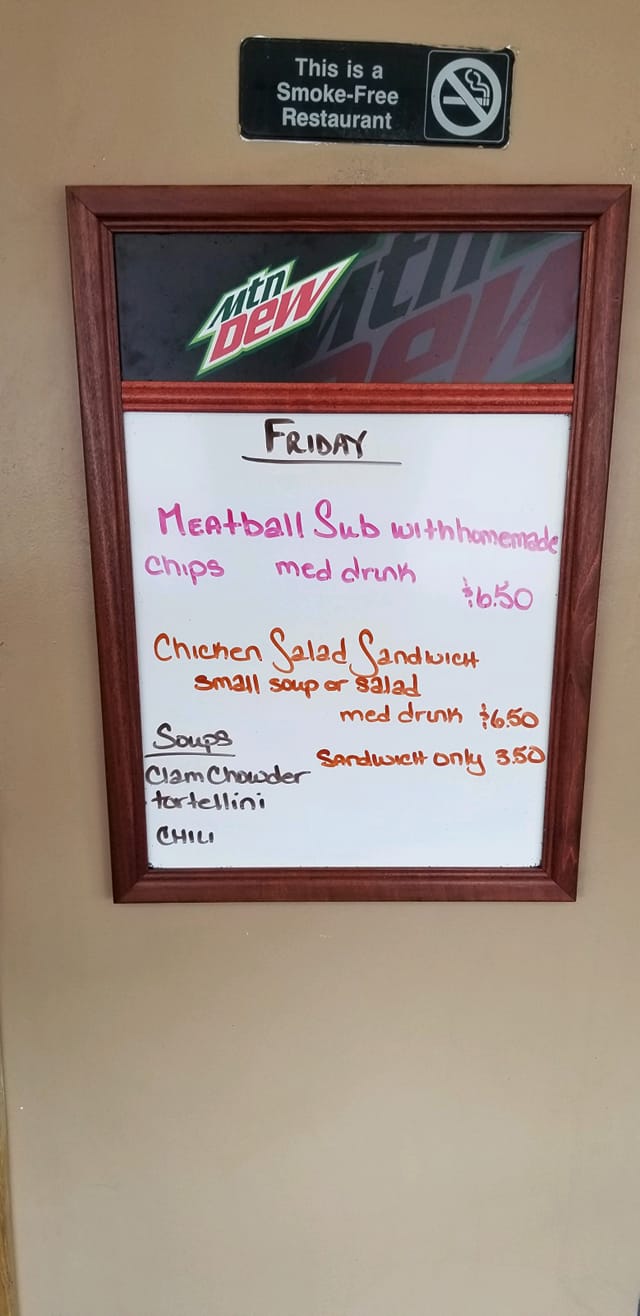 This is a
Smoke-Free
Restaurant
Mtn
DEW
Mtn
DEW
FRIDAY
MEAtball Sub with homemade
Chips med drink
$6.50
Chicken Salad Sandwich
small soup or salad
med drink $6.50
Sandwich only 3.50
Soups
Clam Chowder
tortellini
CHILI